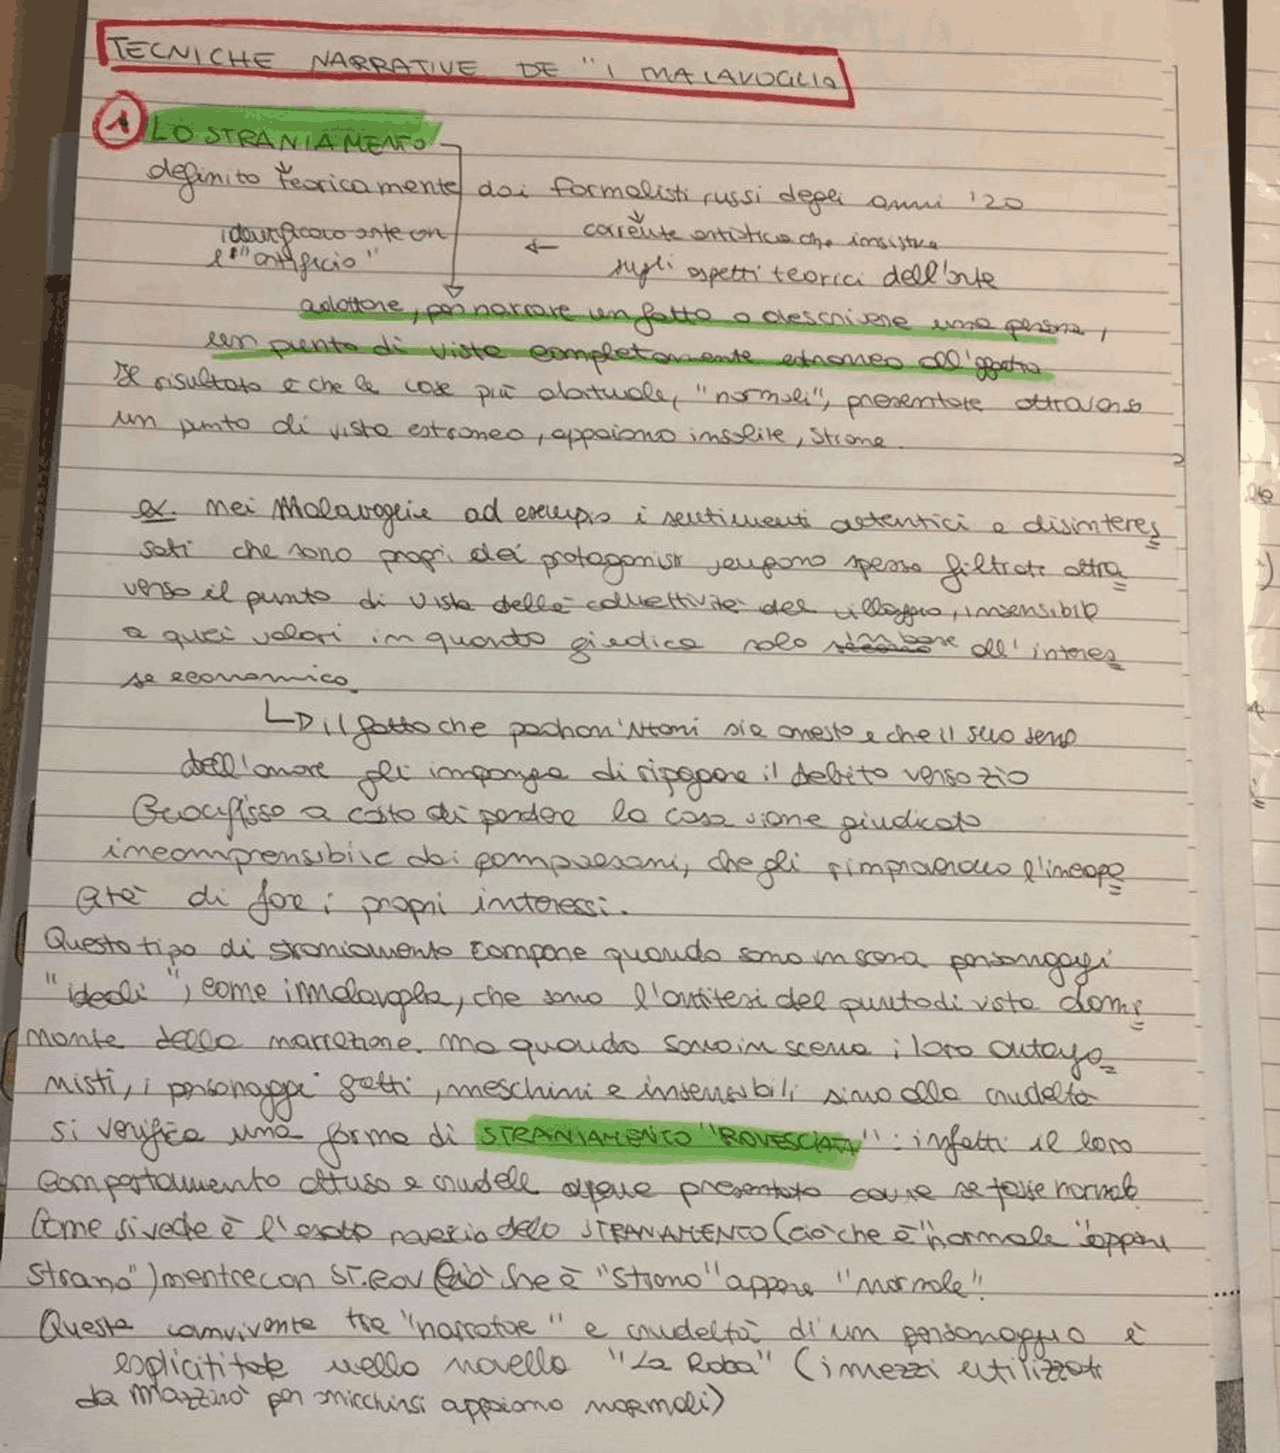 TECNICHE NARRATIVE DE "I MALAVOGLIA
1 LO STRANIAMENTO
definito teoricamente dai formalisti russi degli anni '20
identificano arte con ← corrente artistica che insisteva
l'"artificio" sugli aspetti teorici dell'arte
adottare, per narrare un fatto o descrivere una persona,
un punto di vista completamente estraneo all'oggetto
Il risultato è che le cose più abituale, "normali", presentate attraverso
un punto di vista estraneo, appaiono insolite, strane.
ex. nei Malavoglia ad esempio i sentimenti autentici e disinteres
sati che sono propri dei protagonisti vengono spesso filtrati attra
verso il punto di vista della collettività del villaggio, insensibile
a quei valori in quanto giudica solo in base all'interes
se economico.
└> il fatto che padron 'Ntoni sia onesto e che il suo senso
dell'onore gli imponga di ripagare il debito verso zio
Crocifisso a costo di perdere la casa viene giudicato
incomprensibile dai compaesani, che gli rimproverano l'incapa
cità di fare i propri interessi.
Questo tipo di straniamento compare quando sono in scena personaggi
"ideali", come i malavoglia, che sono l'antitesi del punto di vista domi
nante della narrazione. Ma quando sono in scena i loro antago
nisti, i personaggi gretti, meschini e insensibili sino alla crudeltà
si verifica una forma di STRANIAMENTO "ROVESCIATO": infatti il loro
comportamento ottuso e crudele appare presentato come se fosse normale
Come si vede è l'esatto rovescio dello STRANIAMENTO (ciò che è "normale" appare
strano") mentre con ST. ROV (ciò che è "strano" appare "normale"!
Questa connivente tra "narratore" e crudeltà di un personaggio è
esplicititate nella novella "La Roba" (i mezzi utilizzati
da Mazzarò per arricchirsi appaiono normali)